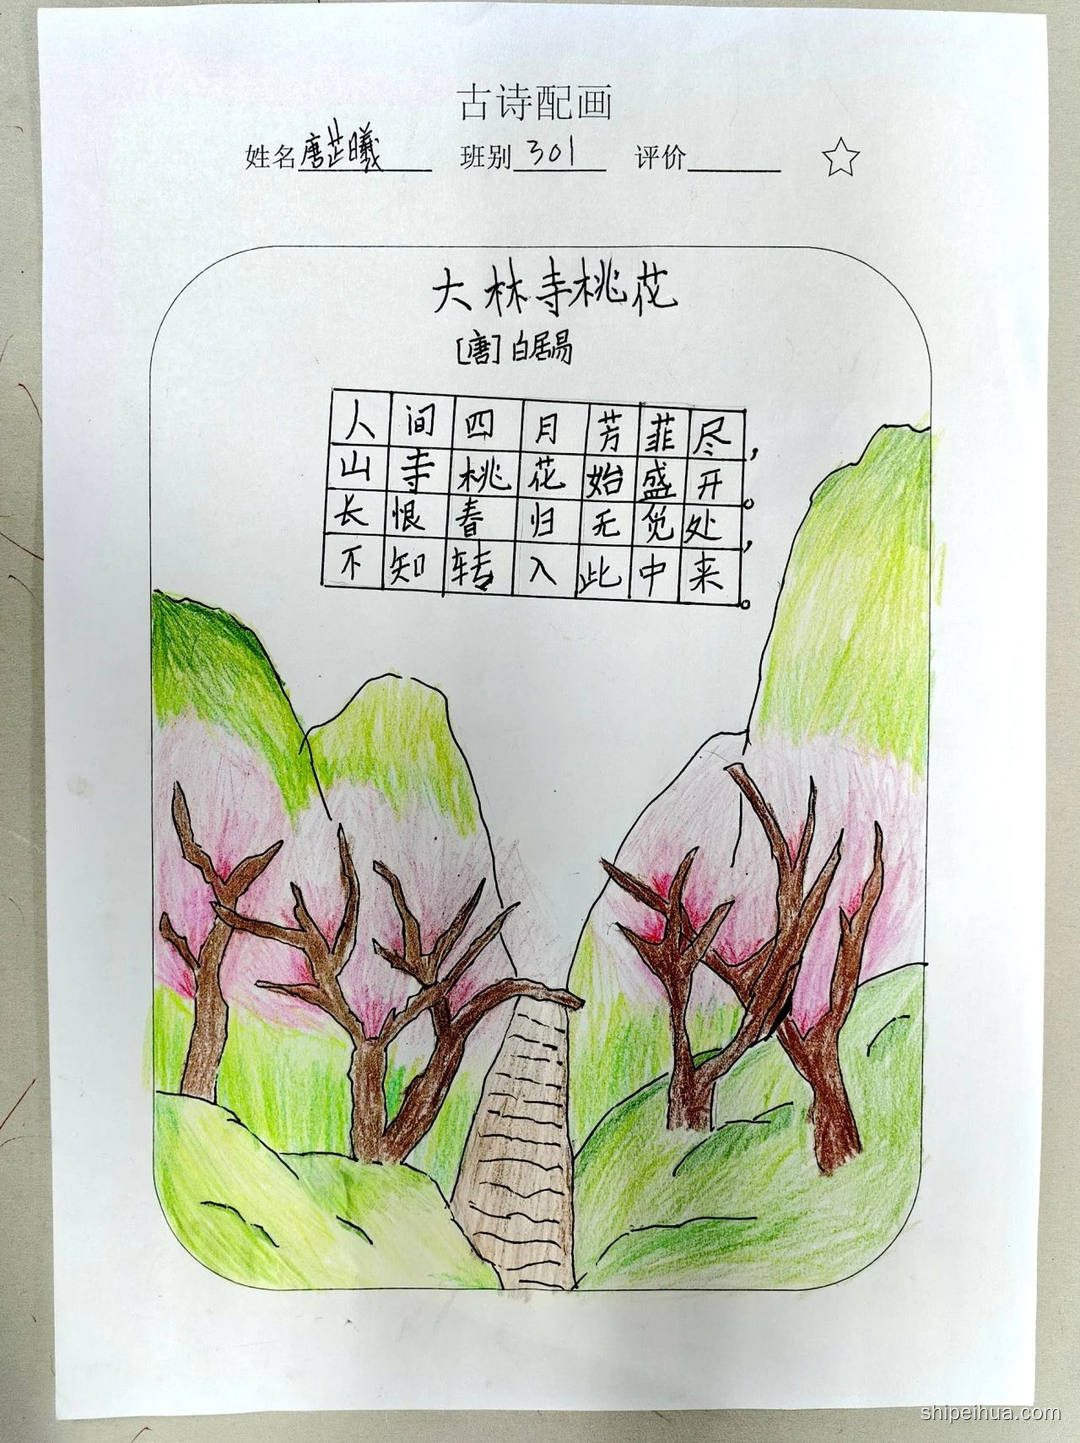 古诗配画
姓名唐芷曦 班别301 评价
大林寺桃花
[唐]白居易
人间四月芳菲尽，
山寺桃花始盛开。
长恨春归无觅处，
不知转入此中来。
shipeihua.com